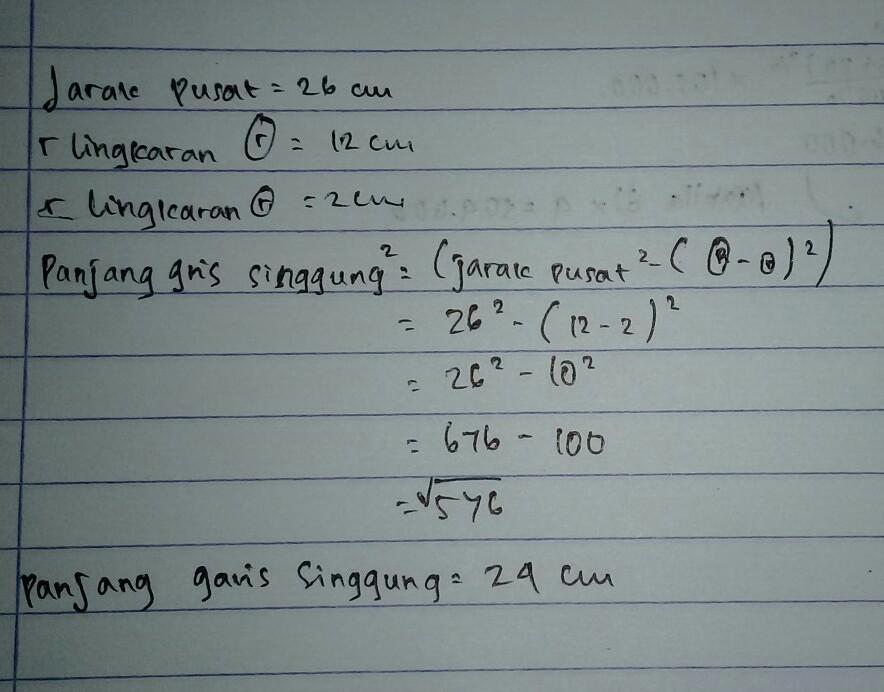 Jarak pusat = 26 cm
r lingkaran ⓡ = 12 cm
r lingkaran ⓡ = 2 cm
Panjang gris singgung² = (jarak pusat² - (Ⓡ - ⓡ)²)
= 26² - (12 - 2)²
= 26² - 10²
= 676 - 100
= √576
Panjang garis singgung = 24 cm